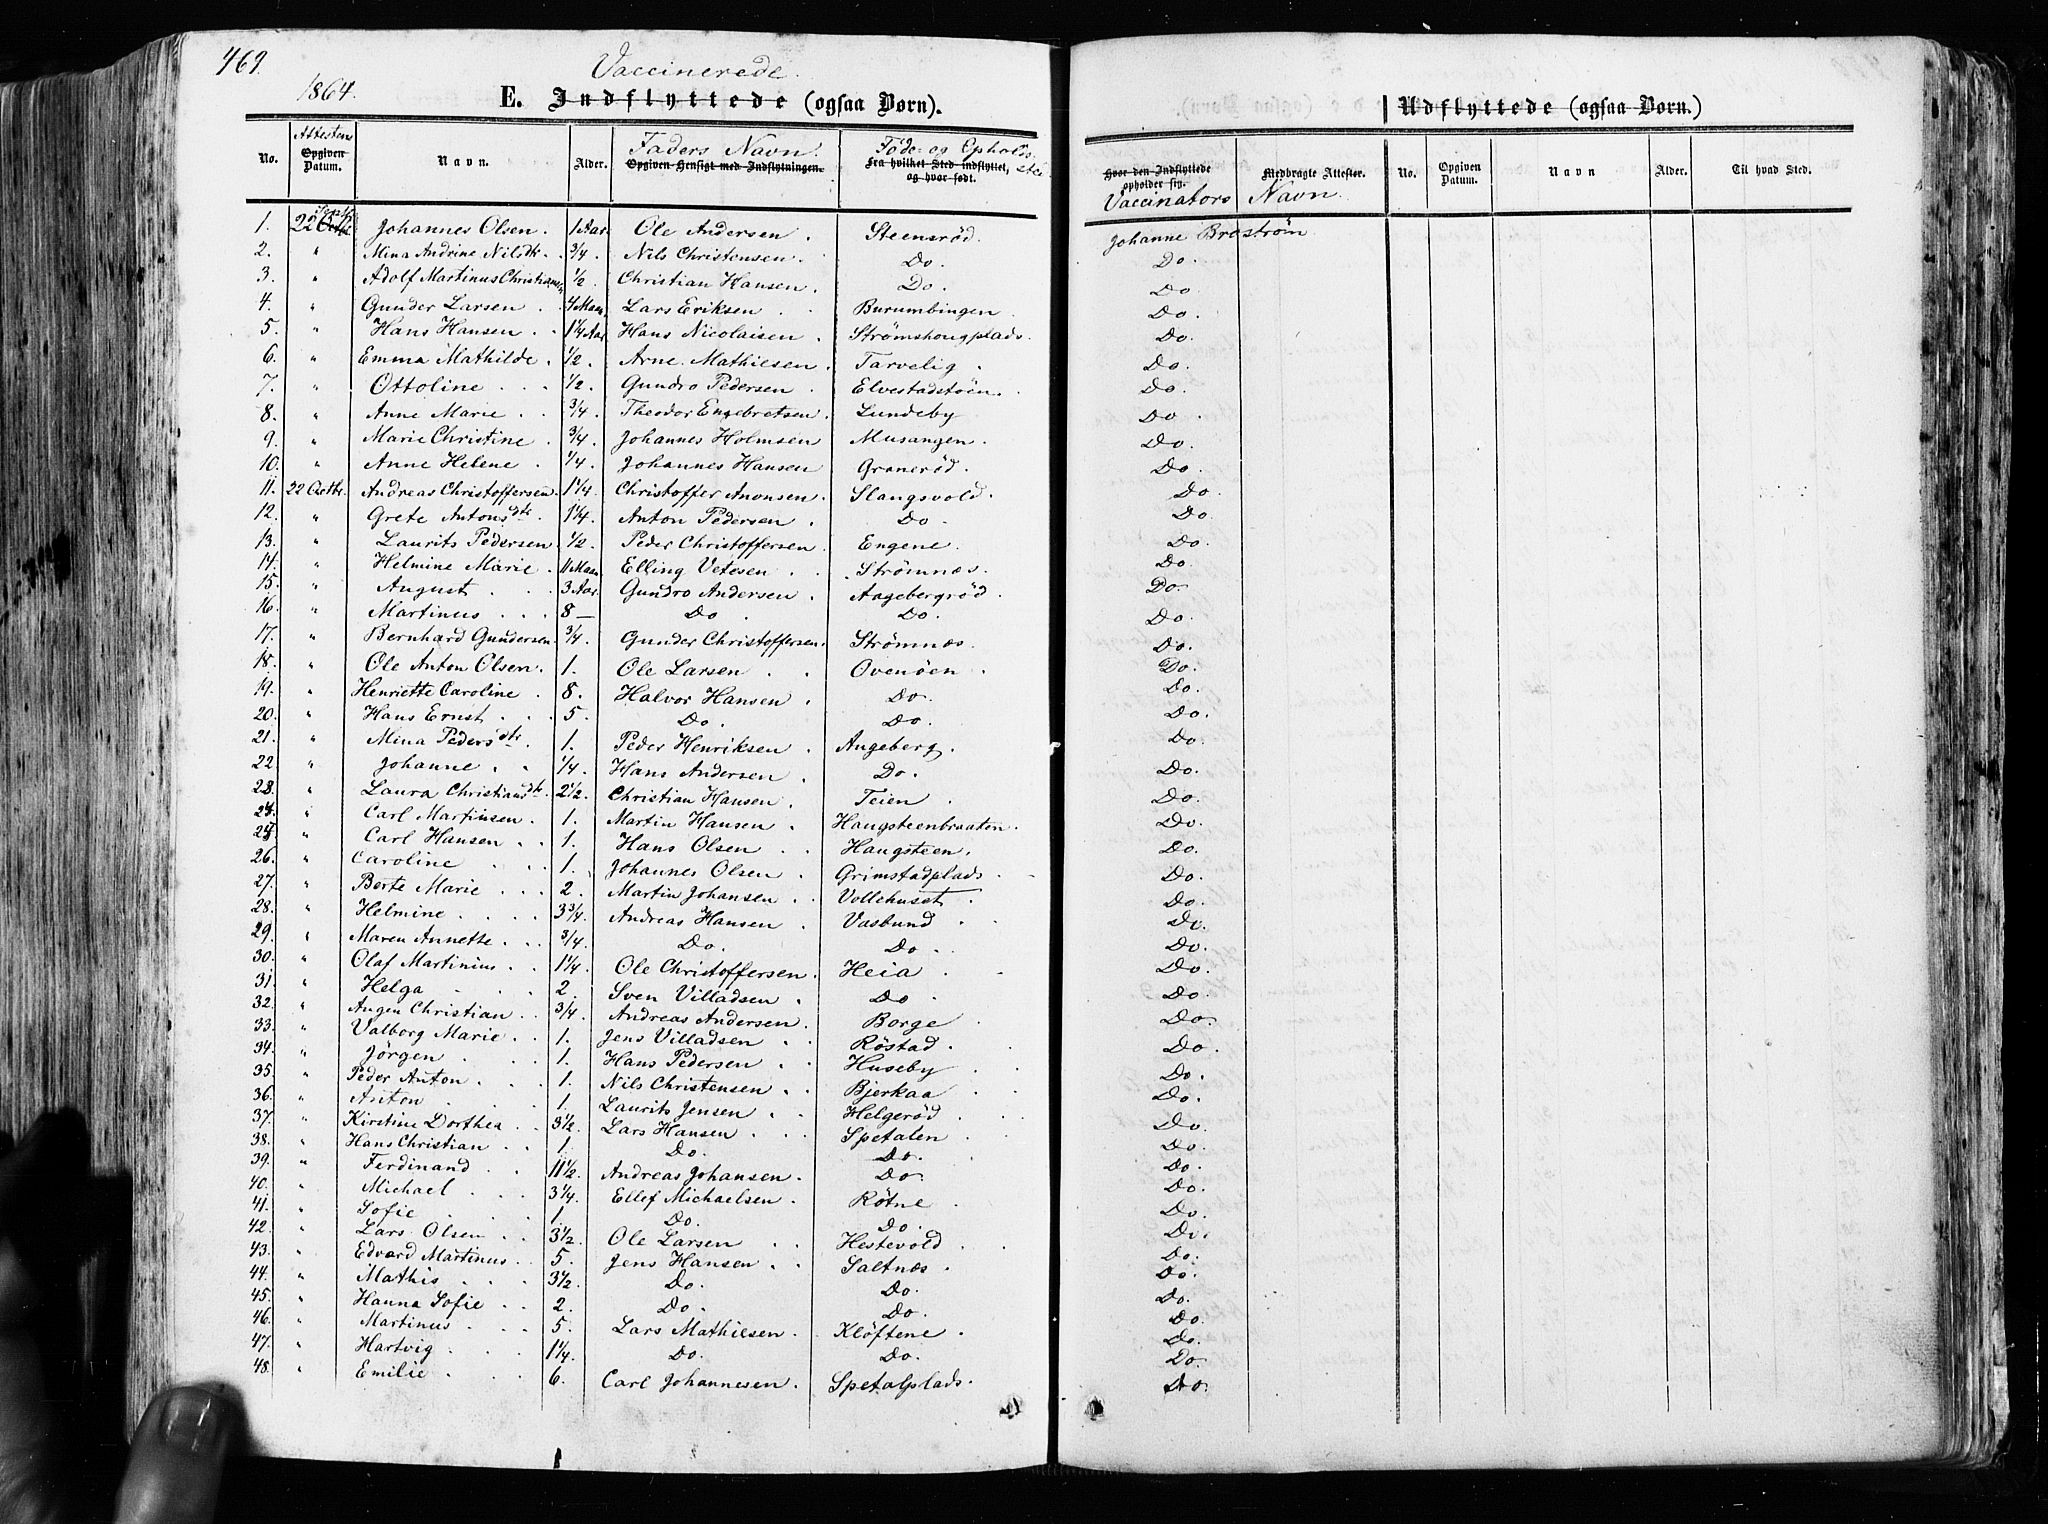 469.
1864.
Vaccinerede.
E. Indflyttede (ogsaa Børn).
Udflyttede (ogsaa Børn.)
No. Attestens Opgiven Datum. Navn. Alder. Faders Navn. Opgiven Hensigt med Indflytningen. Føde- og Opholds- sted Fra hvilket Sted indflyttet, og hvor født. Hvor den Indflyttede opholder sig. Medbragte Attester. Vaccinators Navn. No. Opgiven Datum. Navn Alder. Til hvad Sted.
1. 22 Septb. Johannes Olsen. 1 Aar. Ole Andersen. Steensrød. Johanne Broström
2. " Mina Andrine Nilsdtr. 3/4. Nils Christensen. Do. Do.
3. " Adolf Martinus Christiansen 1/2. Christian Hansen. Do. Do
4. " Gunder Larsen 4 Maan. Lars Eriksen Burumbingen. Do.
5. " Hans Hansen 1 1/4 Aar Hans Nicolaisen. Strømshougplads. Do.
6. " Emma Mathilde. 1/2. Arne Mathiesen Tarvelig. Do.
7. " Ottoline 1/2. Gundro Pedersen. Elvestadstøen. Do.
8. " Anne Marie 3/4. Theodor Engebretsen. Lundeby Do.
9. " Marie Christine 3/4. Johannes Holmsen Musangen. Do.
10. " Anne Helene 1/4. Johannes Hansen Granerød. Do.
11. 22 Octbr. Andreas Christoffersen. 1 1/4. Christoffer Anonsen. Slangsvold. Do.
12. " Grete Antonsdtr. 1 1/4. Anton Pedersen. Do. Do.
13. " Laurits Pedersen 1/2. Peder Christoffersen. Engene. Do.
14. " Helmine Marie. 11 Maan. Elling Vetesen. Strømnæs. Do.
15. " August 3 Aar. Gundro Andersen. Aagebergrød. Do.
16. " Martinus 8 — Do. Do. Do.
17. " Bernhard Gundersen. 3/4. Gunder Christoffersen. Strømnæs. Do.
18. " Ole Anton Olsen. 1. Ole Larsen Ovenøen Do.
19. " Henriette Caroline 8. Halvor Hansen. Do. Do.
20. " Hans Ernst 5. Do. Do. Do.
21. " Mina Pedersdtr. 1. Peder Henriksen. Augeberg. Do.
22. " Johanne 1/4. Hans Andersen. Do. Do.
23. " Laura Christiansdtr. 2 1/2. Christian Hansen. Teien Do.
24. " Carl Martinsen. 1. Martin Hansen. Haugsteenbraaten. Do.
25. " Carl Hansen 1. Hans Olsen Haugsteen. Do.
26. " Caroline 1. Johannes Olsen. Grimstadplads Do.
27. " Berte Marie 2. Martin Johansen. Vollehuset. Do.
28. " Helmine 3 3/4. Andreas Hansen. Vasbund Do.
29. " Maren Annette 3/4. Do. Do. Do.
30. " Olaf Martinius 1 1/4. Ole Christoffersen. Heia Do.
31. " Helga 2. Sven Villadsen. Do. Do.
32. " Augen Christian 3/4. Andreas Andersen. Borge. Do.
33. " Valborg Marie 1. Jens Villadsen Røstad. Do.
34. " Jørgen 1. Hans Pedersen Huseby Do.
35. " Peder Anton 1. Nils Christensen Bjerkaa Do.
36. " Anton 1. Laurits Jensen Helgerød Do.
37. " Kirstine Dorthea 3 1/2. Lars Hansen Spetalen Do.
38. " Hans Christian 1. Do. Do. Do.
39. " Ferdinand 11 1/2. Andreas Johansen. Do. Do.
40. " Michael 3 1/4. Ellef Michaelsen Røtne Do.
41. " Sofie 1. Do. Do. Do.
42. " Lars Olsen 3 1/2. Ole Larsen Hestevold Do.
43. " Edvard Martinus 5. Jens Hansen Saltnæs. Do.
44. " Mathis 3 1/2. Do. Do. Do.
45. " Hanna Sofie 2. Do. Do. Do.
46. " Martinus 5. Lars Mathiesen. Kløftene. Do.
47. " Hartvig 1 1/4. Do. Do. Do.
48. " Emilie 6. Carl Johannesen. Spetalplads. Do.
Do.